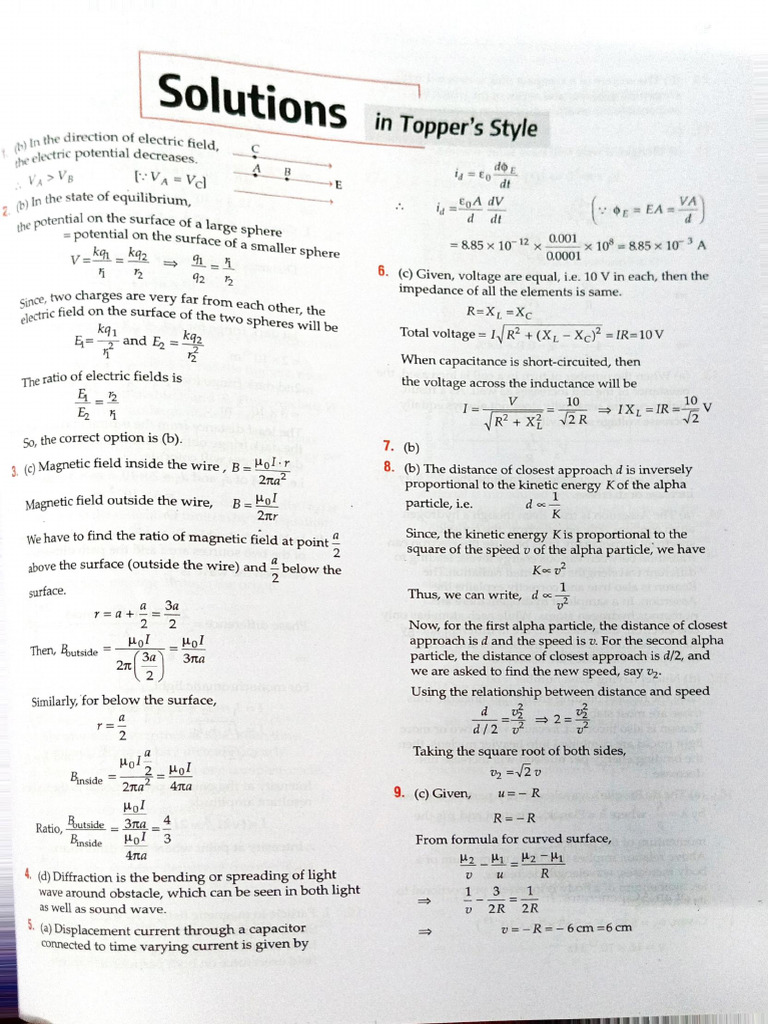 Solutions
in Topper's Style
1. (b) In the direction of electric field,
the electric potential decreases.
∴ V_A > V_B [∵ V_A = V_C]
C
A B
E
2. (b) In the state of equilibrium,
the potential on the surface of a large sphere
= potential on the surface of a smaller sphere
V = kq₁/r₁ = kq₂/r₂ ⇒ q₁/q₂ = r₁/r₂
Since, two charges are very far from each other, the
electric field on the surface of the two spheres will be
E₁ = kq₁/r₁² and E₂ = kq₂/r₂²
The ratio of electric fields is
E₁/E₂ = r₂/r₁
So, the correct option is (b).
3. (c) Magnetic field inside the wire , B = μ₀I · r/2πa²
Magnetic field outside the wire, B = μ₀I/2πr
We have to find the ratio of magnetic field at point a/2
above the surface (outside the wire) and a/2 below the
surface.
r = a + a/2 = 3a/2
Then, B_outside = μ₀I/2π(3a/2) = μ₀I/3πa
Similarly, for below the surface,
r = a/2
B_inside = μ₀I a/2 / 2πa² = μ₀I/4πa
Ratio, B_outside/B_inside = (μ₀I/3πa)/(μ₀I/4πa) = 4/3
4. (d) Diffraction is the bending or spreading of light
wave around obstacle, which can be seen in both light
as well as sound wave.
5. (a) Displacement current through a capacitor
connected to time varying current is given by
i_d = ε₀ dϕ_E/dt
∴ i_d = ε₀A/d dV/dt (∵ ϕ_E = EA = VA/d)
= 8.85 × 10⁻¹² × 0.001/0.0001 × 10⁸ = 8.85 × 10⁻³ A
6. (c) Given, voltage are equal, i.e. 10 V in each, then the
impedance of all the elements is same.
R = X_L = X_C
Total voltage = I√(R² + (X_L − X_C)²) = IR = 10 V
When capacitance is short-circuited, then
the voltage across the inductance will be
I = V/√(R² + X_L²) = 10/√2 R ⇒ I X_L = IR = 10/√2 V
7. (b)
8. (b) The distance of closest approach d is inversely
proportional to the kinetic energy K of the alpha
particle, i.e. d ∝ 1/K
Since, the kinetic energy K is proportional to the
square of the speed v of the alpha particle, we have
K ∝ v²
Thus, we can write, d ∝ 1/v²
Now, for the first alpha particle, the distance of closest
approach is d and the speed is v. For the second alpha
particle, the distance of closest approach is d/2, and
we are asked to find the new speed, say v₂.
Using the relationship between distance and speed
d/(d/2) = v₂²/v² ⇒ 2 = v₂²/v²
Taking the square root of both sides,
v₂ = √2 v
9. (c) Given, u = − R
R = − R
From formula for curved surface,
μ₂/v − μ₁/u = (μ₂ − μ₁)/R
⇒ 1/v − 3/2R = 1/2R
⇒ v = − R = − 6 cm = 6 cm